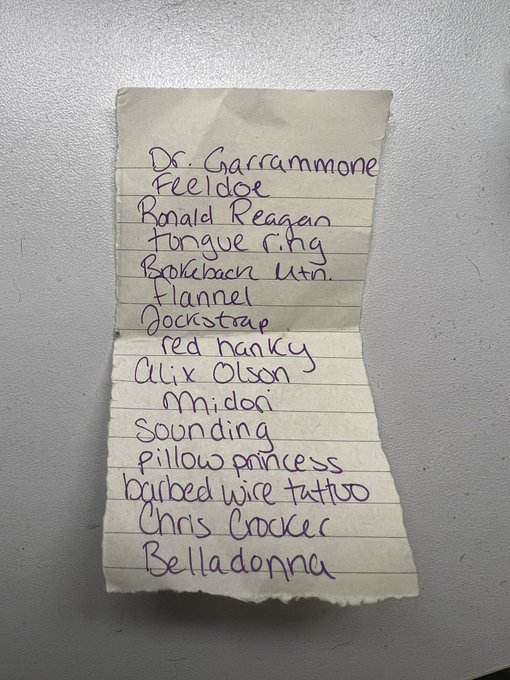 Dr. Garrammone
Feeldoe
Ronald Reagan
tongue ring
Brokeback Mtn.
flannel
Jockstrap
red hanky
Alix Olson
Midori
Sounding
pillow princess
barbed wire tattoo
Chris Crocker
Belladonna